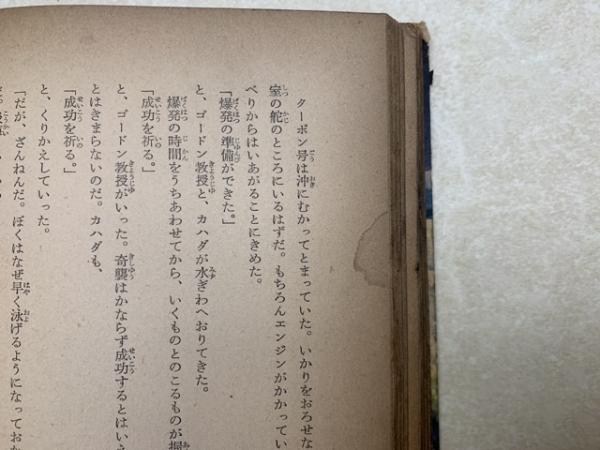 ターポン号は沖にむかってとまっていた。いかりをおろせな
室の舵のところにいるはずだ。もちろんエンジンがかかってい
べりからはいあがることにきめた。
「爆発の準備ができた。」
と、ゴードン教授と、カハダが水ぎわへおりてきた。
爆発の時間をうちあわせてから、いくものとのこるものが握
「成功を祈る。」
と、ゴードン教授がいった。奇襲はかならず成功するとはいえ
とはきまらないのだ。カハダも、
「成功を祈る。」
と、くりかえしていった。
「だが、ざんねんだ。ぼくはなぜ早く泳げるようになってお